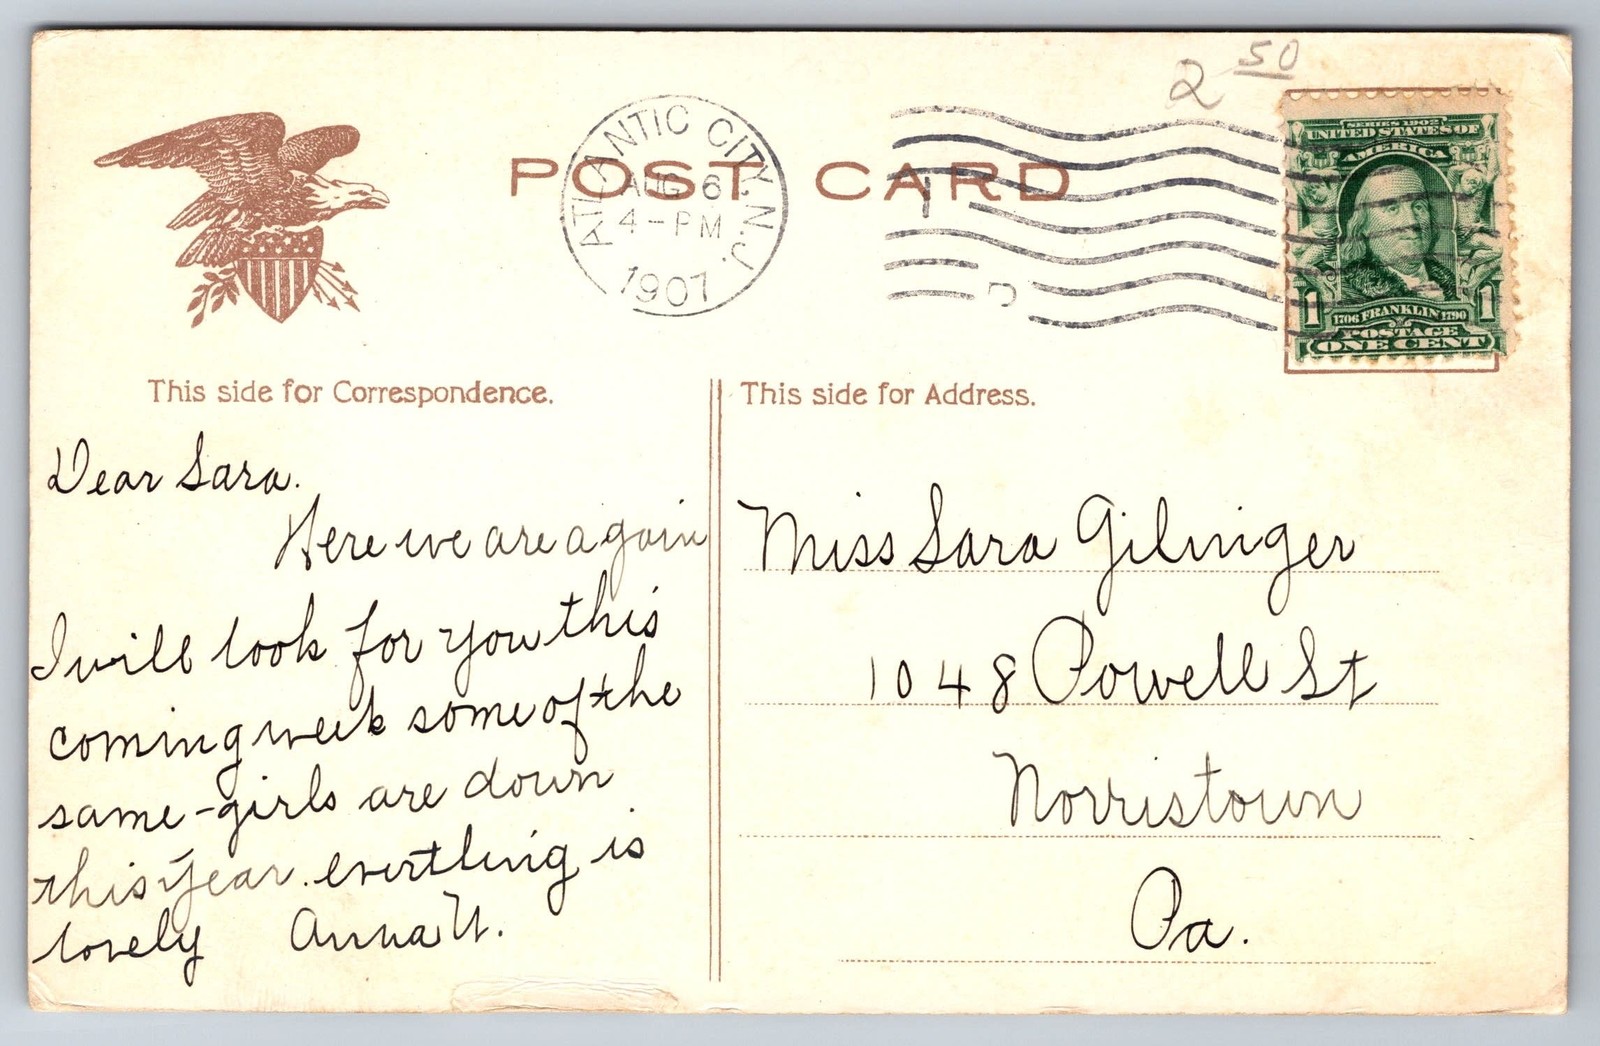 2 50
POST CARD
ATLANTIC CITY, N.J.
AUG 6
4-PM
1907
D
SERIES 1902
UNITED STATES OF
AMERICA
1 1
1706 FRANKLIN 1790
POSTAGE
ONE CENT
This side for Correspondence.
Dear Sara.
Here we are again
I will look for you this
coming week some of the
same-girls are down
this year. evertling is
lovely Anna W.
This side for Address.
Miss Sara Gilinger
1048 Powell St
Norristown
Pa.